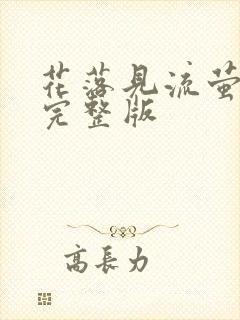 花落見流萤
完整版
高長力